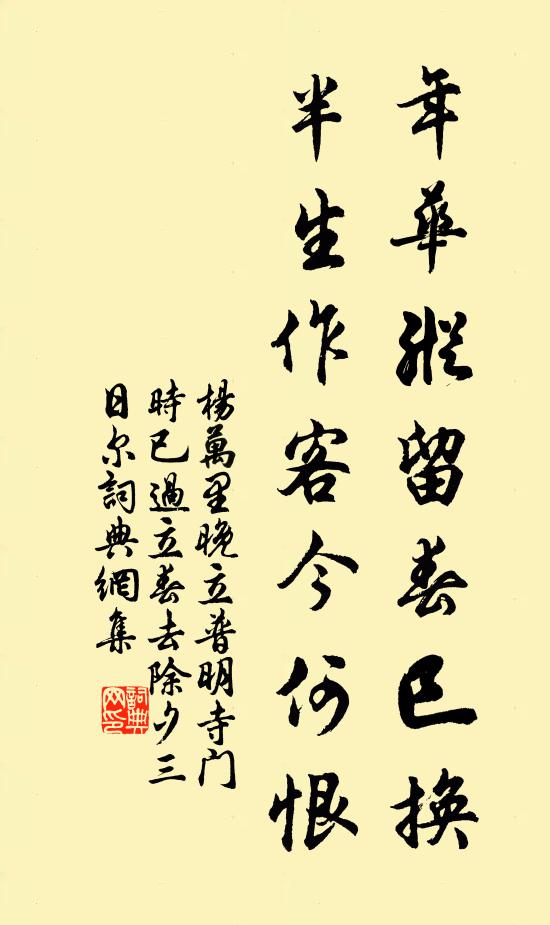 年華縱留春已換
半生作客今何恨
楊萬里晚立普明寺門
時已過立春去除夕三
日尔詞典網集
詞典網印